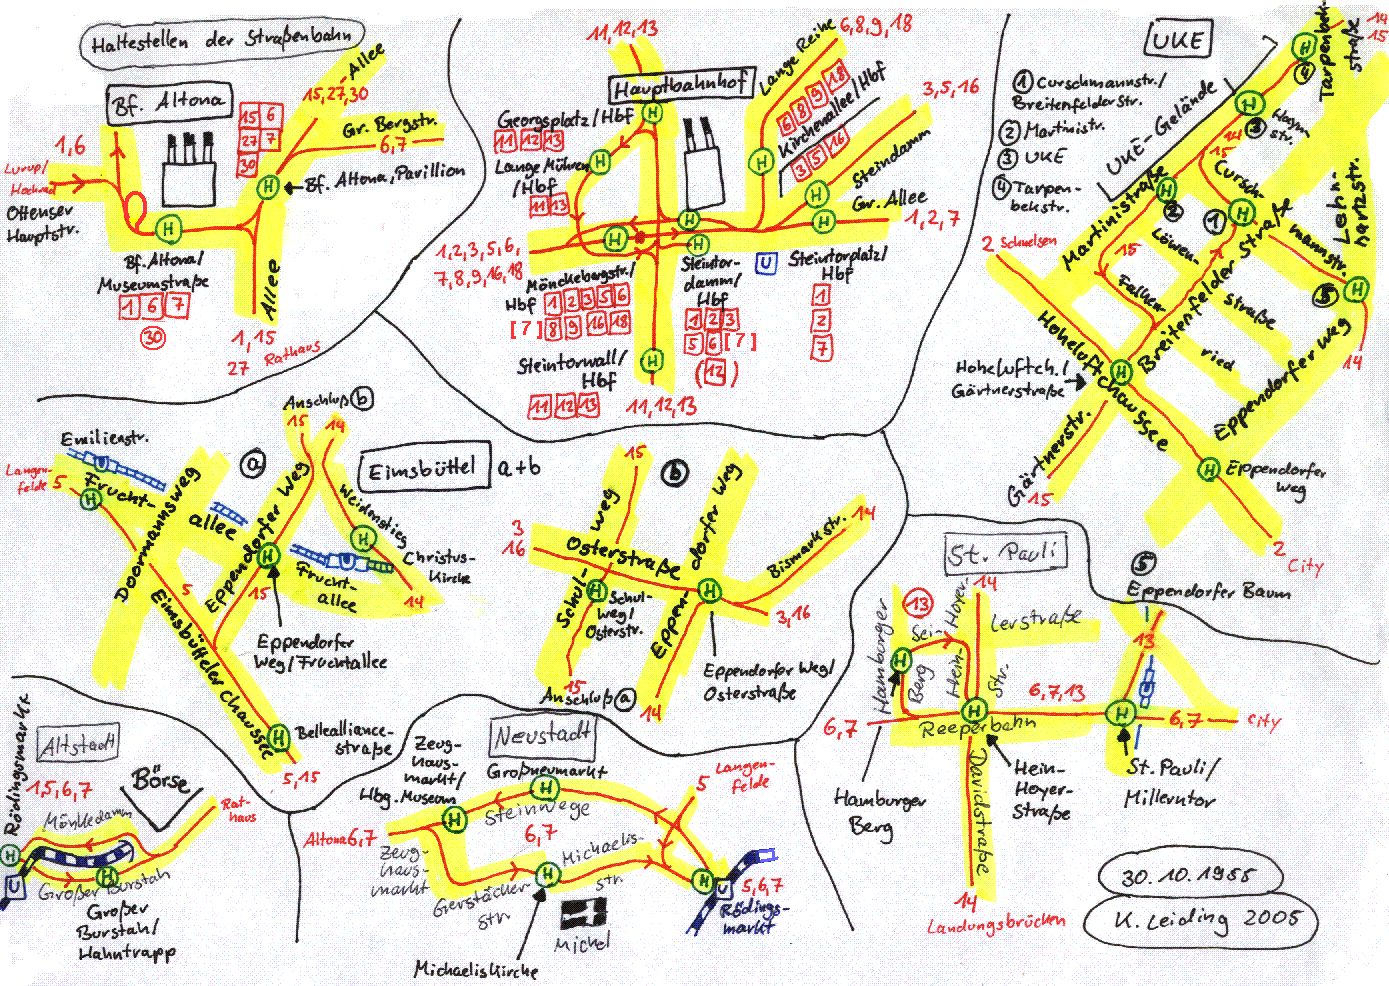 Haltestellen der Straßenbahn
Bf. Altona
15 6
27 7
30
Allee
15,27,30
Gr. Bergstr.
6,7
1,6
Lurup/
Ottenser
Hauptstr.
Bf. Altona, Pavillion
Bf. Altona/
Museumstraße
1 6 7
30
Allee
1,15
27 Rathaus
11,12,13
Hauptbahnhof
Georgsplatz/Hbf
11 12 13
Lange Mühren
/Hbf
11 13
Lange Reihe
6,8,9,18
6 8 9 18
Kirchenallee/Hbf
3 5 16
3,5,16
Steindamm
Gr. Allee
1,2,7
1,2,3,5,6,
7,8,9,16,18
Mönckebergstr./
Hbf 1 2 3 5 6
[7] 8 9 16 18
Steintor-
damm/
Hbf
1 2 3
5 6 [7]
(12)
U
Steintorplatz/
Hbf
1
2
7
Steintorwall/
Hbf
11 12 13
11,12,13
UKE
1 Curschmannstr./
Breitenfelderstr.
2 Martinistr.
3 UKE
4 Tarpen-
bekstr.
UKE-Gelände
Tarpenbek-
straße
14
15
4
3
14
15
Haynstr.
Martinistraße
2
1
Cursch-
mannstr.
Lehn-
hartzstr.
5
14
2 Schnelsen
15
Löwen-
straße
Falken-
ried
Breitenfelder Straße
Hoheluftchaussee
Eppendorfer Weg
Hoheluftch./
Gärtnerstraße
Gärtnerstr.
15
Eppendorfer
Weg
2
City
Emilienstr.
Langen-
felde 5
Frucht-
allee
Doormannsweg
a
Anschluß b
15
14
Eimsbüttel a+b
Eppendorfer Weg
Weidenstieg
Christus-
Kirche
14
Frucht-
allee
5
15
Eimsbütteler Chaussee
Eppendorfer
Weg/Fruchtallee
Bellealliance-
straße
5,15
b
15
Schul-
weg
3
16
Osterstraße
Eppen-
dorfer Weg
Bismarkstr.
14
3,16
Schul-
weg/
Osterstr.
Eppendorfer Weg/
Osterstraße
15
Anschluß a
14
St. Pauli
5
Eppendorfer Baum
Hamburger
Berg
13
Sei-
lerstraße
Hein-Hoyer-
Str.
14
6,7
Reeperbahn
6,7,13
13
6,7
City
Hamburger
Berg
Hein-
Hoyer-
Straße
St. Pauli/
Millerntor
Davidstraße
14
Landungsbrücken
Altstadt
Rödingsmarkt
1,5,6,7
Börse
Mönkedamm
Rat-
haus
U
Großer Burstah
Großer
Burstah/
Hahntrapp
Neustadt
Zeug-
haus-
markt/
Hbg. Museum
Großneumarkt
Steinwege
6,7
Altona 6,7
Zeug-
haus-
markt
Gerstäcker-
str.
Michaelis-
str.
5
Langen-
felde
U
5,6,7
Rödings-
markt
Michel
Michaeliskirche
30.10.1955
K. Leiding 2005